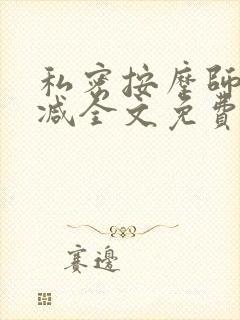 私密按摩師
減全文免費
賽邊